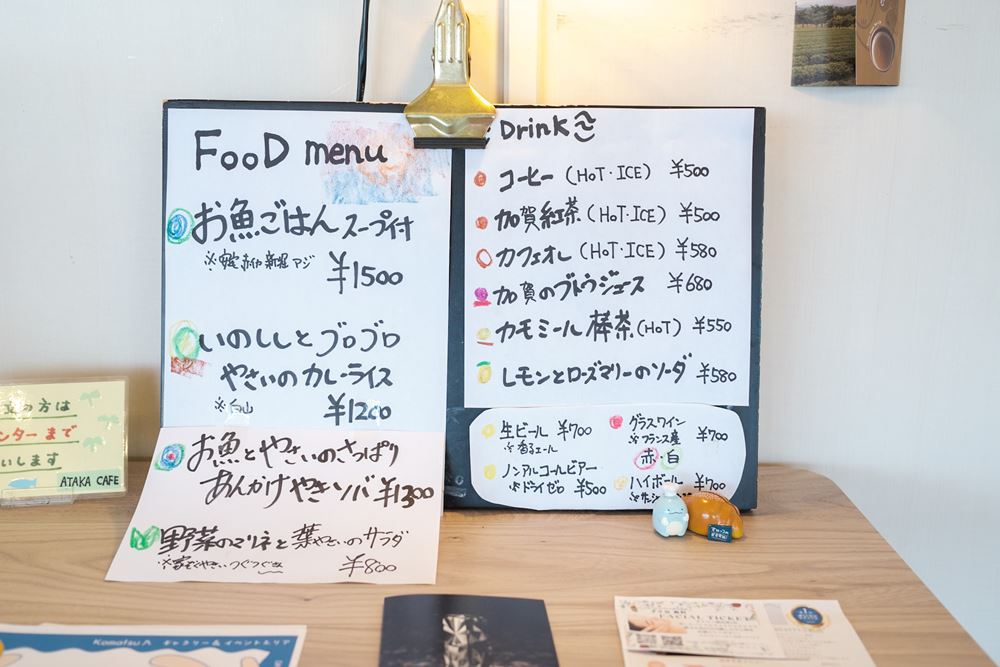 FooD menu
お魚ごはん スープ付
¥1500
いのししとゴロゴロ
やさいのカレーライス
※白山 ¥1200
お魚とやさいのさっぱり
あんかけやきソバ ¥1300
野菜のマリネと葉やさいのサラダ
¥800
Drink
コーヒー (HoT・ICE) ¥500
加賀紅茶 (HoT・ICE) ¥500
カフェオレ (HoT・ICE) ¥580
加賀のブドウジュース ¥680
カモミール棒茶 (HoT) ¥550
レモンとローズマリーのソーダ ¥580
生ビール ¥700
※香るエール
ノンアルコールビアー
※ドライゼロ ¥500
グラスワイン
※フランス産 ¥700
赤・白
ハイボール ¥700
の方は
ンターまで
いします
ATAKA CAFE
Komatsu九 ギャラリー&イベントエリア
FACIAL TICKET